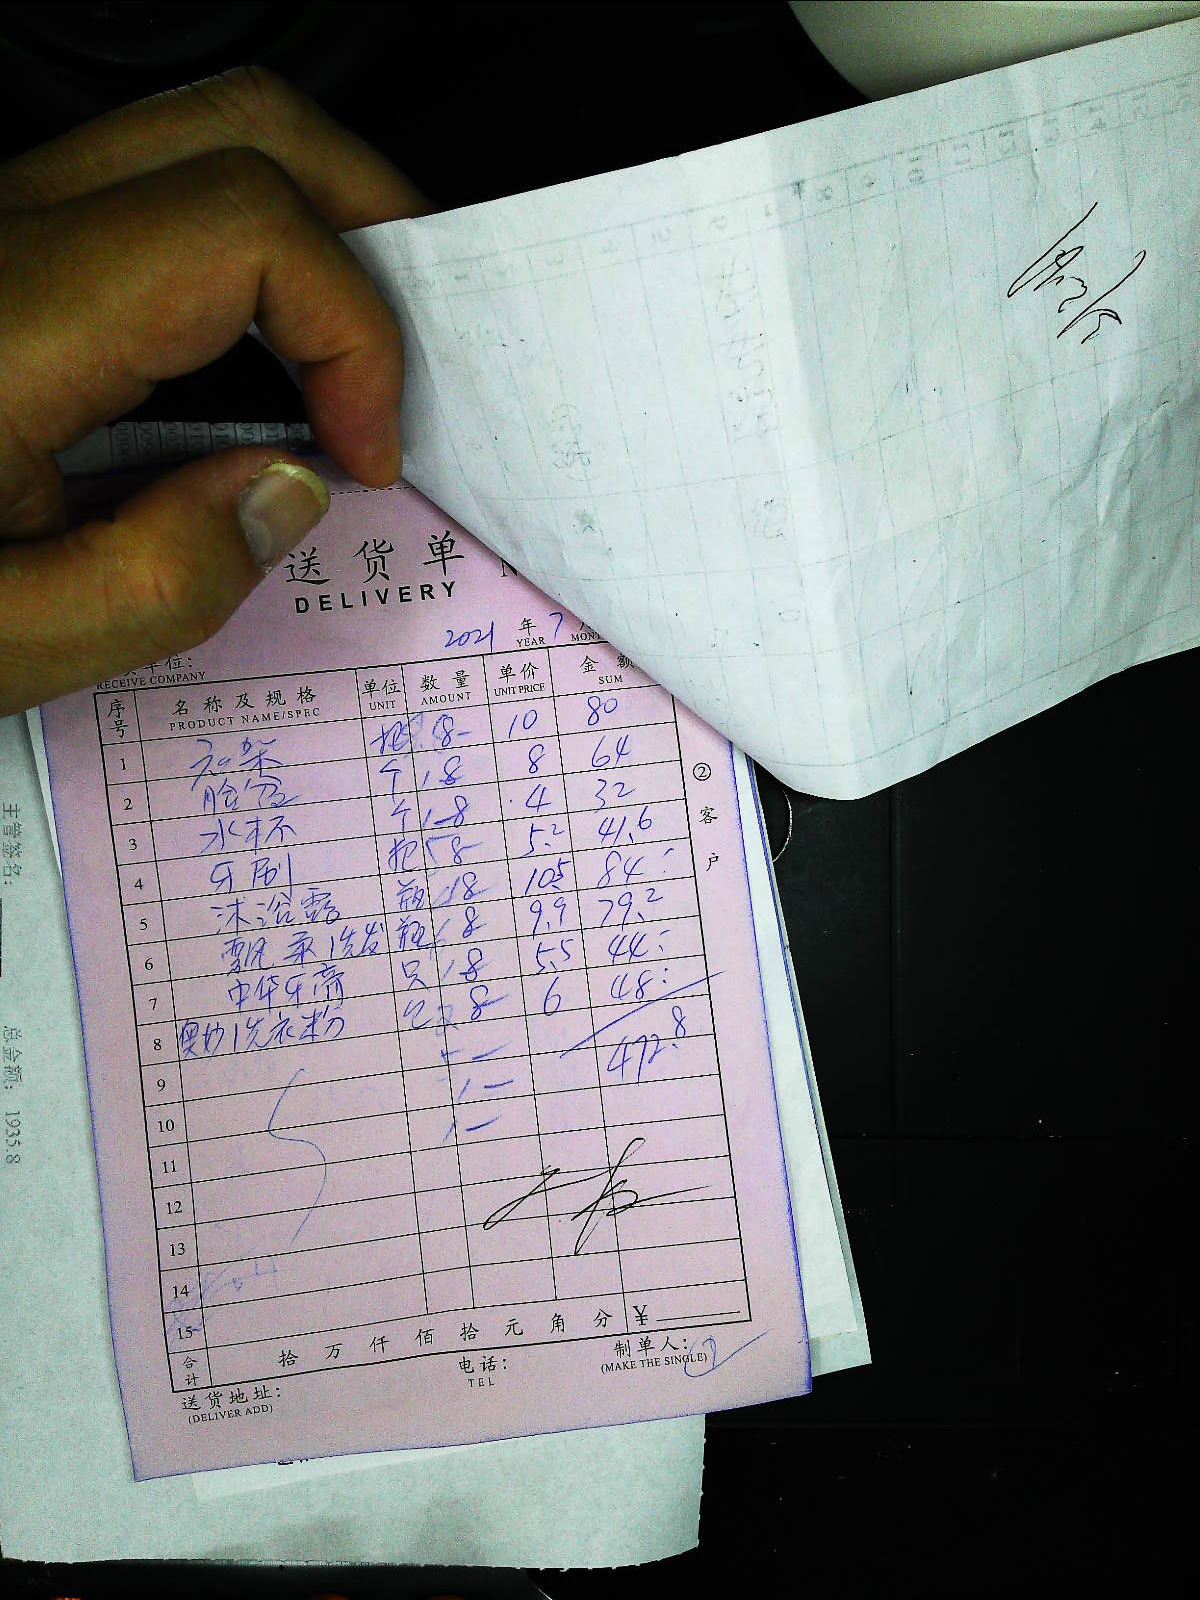 送货单
DELIVERY
2021 年 7
YEAR MON
单位:
RECEIVE COMPANY
序号 名称及规格 单位 数量 单价 金额
PRODUCT NAME/SPEC UNIT AMOUNT UNIT PRICE SUM
1 衣架 8 10 80
2 脸盆 个 8 8 64
3 水杯 个 8 4 32
4 牙刷 把 8 5.2 41.6
5 沐浴露 瓶 8 10.5 84
6 飘柔洗发 瓶 8 9.9 79.2
7 中华牙膏 只 8 5.5 44
8 奥妙洗衣粉 包 8 6 48
9 472.8
10
11
12
13
14
15
合计 拾 万 仟 佰 拾 元 角 分 ¥
送货地址: 电话: 制单人:
(DELIVER ADD) TEL (MAKE THE SINGLE)
② 客户
主管签名:
总金额: 1935.8